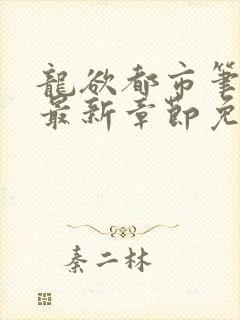 龍欲都市筆
最新章節免
秦二林